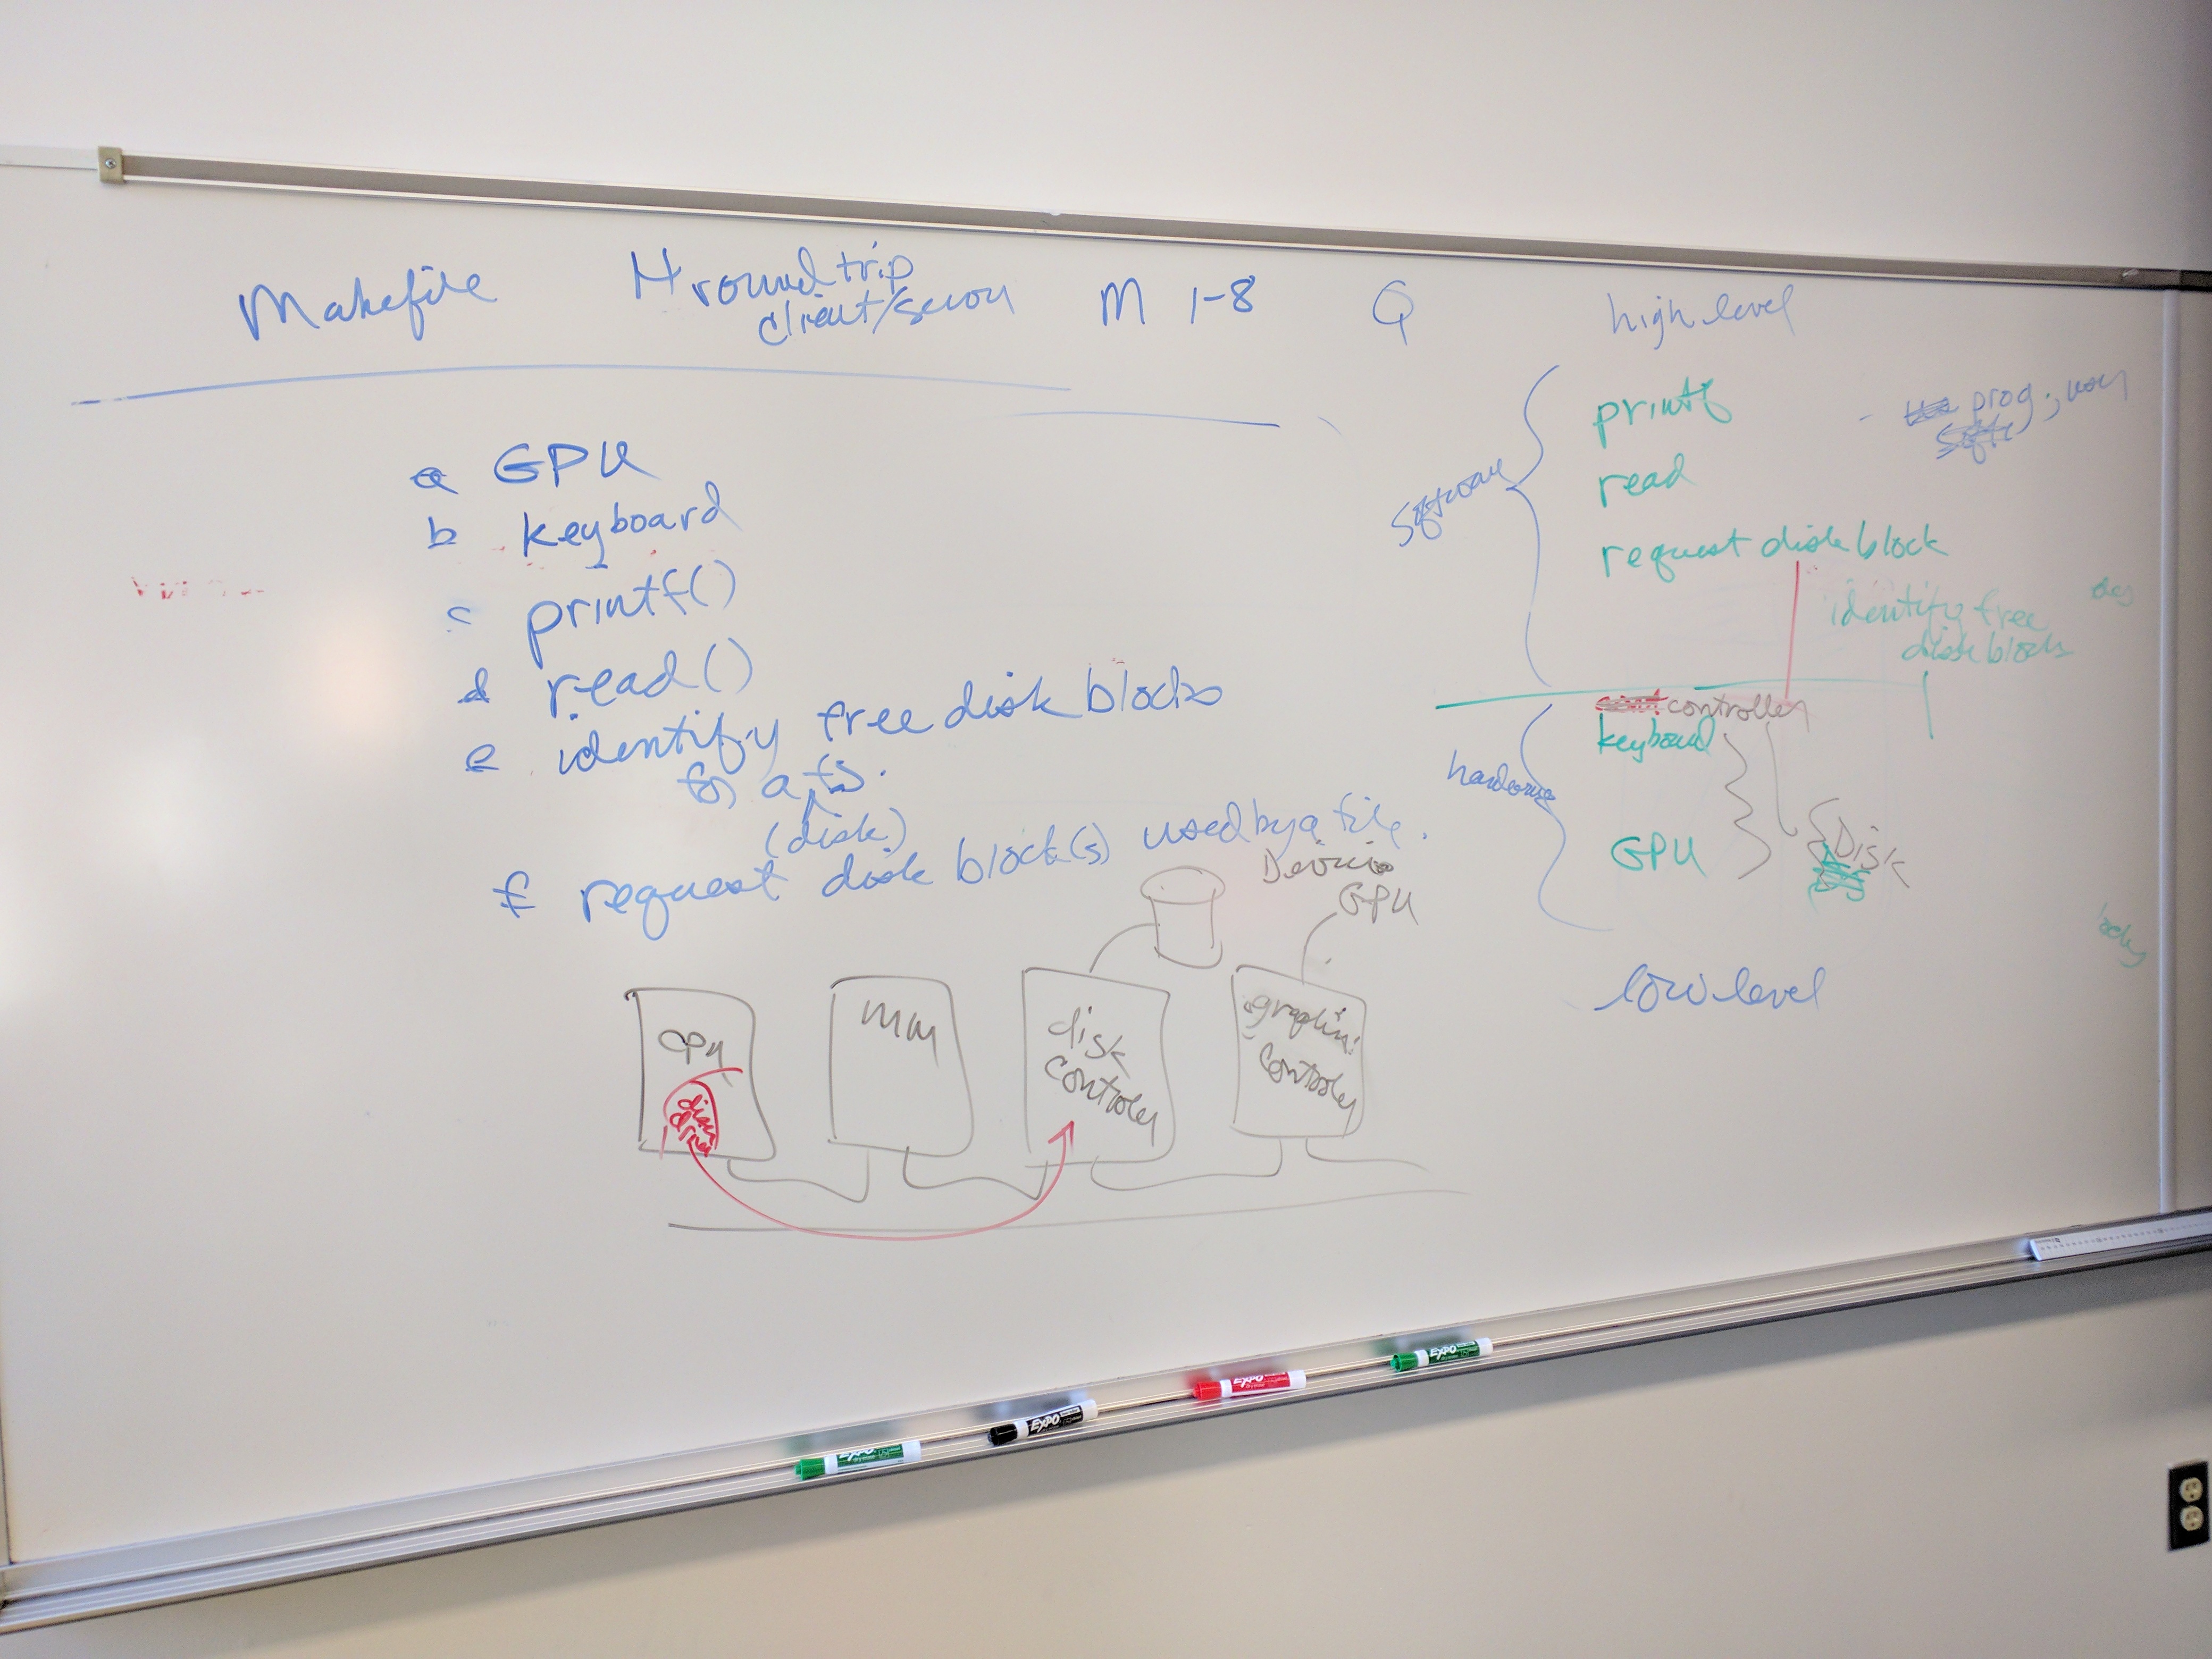 Makefile
H round trip
client/server
M 1-8
Q
a GPU
b keyboard
c printf()
d read()
e identify free disk blocks
for a fs.
(disk)
f request disk block(s) used by a file.
Devices
GPU
CPU
MM
disk
controller
graphics
controller
disk
high level
software
printf
prog.
read
request disk block
identify free
disk blocks
controller
keyboard
hardware
GPU
Disk
low level
EXPO
EXPO
EXPO
EXPO